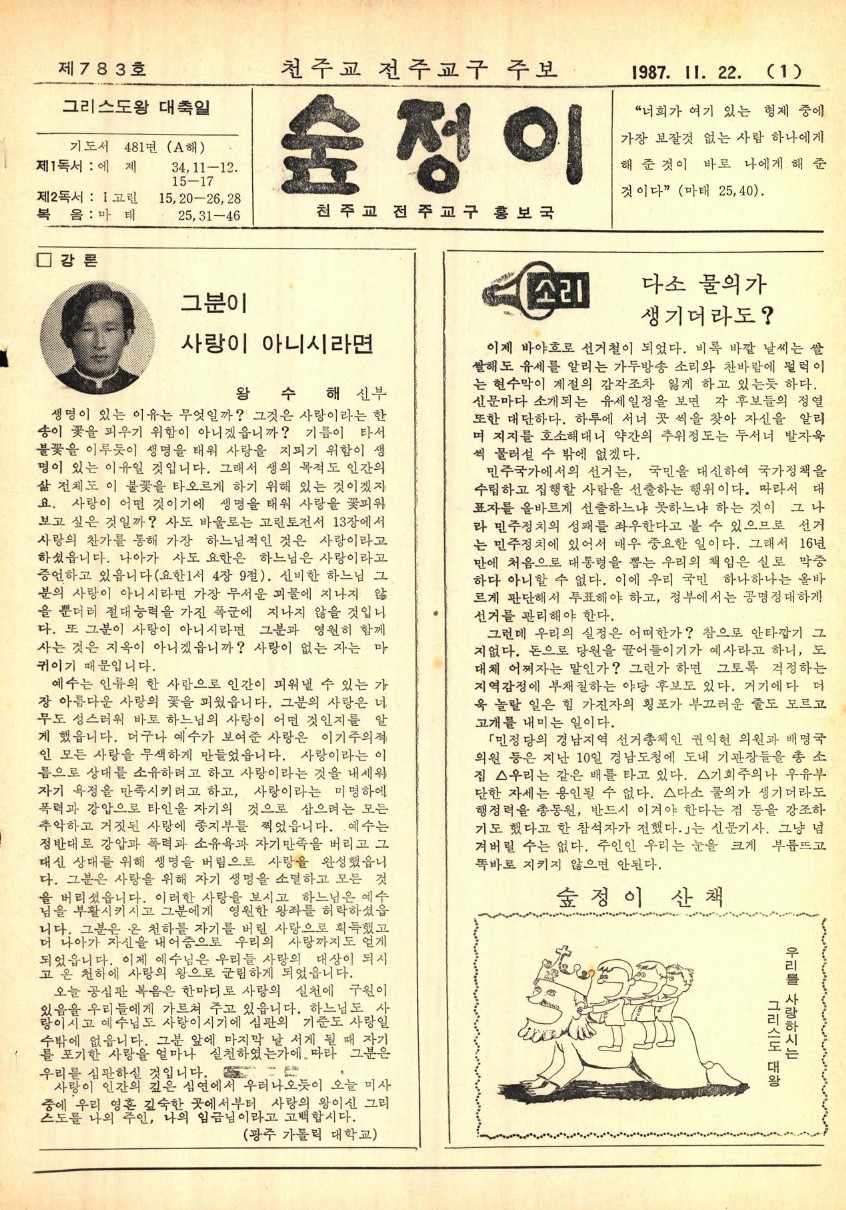 제783호
천주교 전주교구 주보
1987. 11. 22. (1)
그리스도왕 대축일
기도서 481면 (A해)
제1독서 : 에 제 34,11—12.
15—17
제2독서 : I 고린 15,20—26,28
복 음 : 마 태 25,31—46
숲정이
천주교 전주교구 홍보국
“너희가 여기 있는 형제 중에
가장 보잘것 없는 사람 하나에게
해 준 것이 바로 나에게 해 준
것이다” (마태 25,40).
□ 강 론
그분이
사랑이 아니시라면
왕 수 해 신부
생명이 있는 이유는 무엇일까? 그것은 사랑이라는 한
송이 꽃을 피우기 위함이 아니겠읍니까? 기름이 타서
불꽃을 이루듯이 생명을 태워 사랑을 지피기 위함이 생
명이 있는 이유일 것입니다. 그래서 생의 목적도 인간의
삶 전체도 이 불꽃을 타오르게 하기 위해 있는 것이겠지
요. 사랑이 어떤 것이기에 생명을 태워 사랑을 꽃피워
보고 싶은 것일까? 사도 바울로는 고린토전서 13장에서
사랑의 찬가를 통해 가장 하느님적인 것은 사랑이라고
하셨읍니다. 나아가 사도 요한은 하느님은 사랑이라고
증언하고 있읍니다(요한1서 4장 9절). 신비한 하느님 그
분의 사랑이 아니시라면 가장 무서운 괴물에 지나지 않
을 뿐더러 절대능력을 가진 폭군에 지나지 않을 것입니
다. 또 그분이 사랑이 아니시라면 그분과 영원히 함께
사는 것은 지옥이 아니겠읍니까? 사랑이 없는 자는 마
귀이기 때문입니다.
예수는 인류의 한 사람으로 인간이 피워낼 수 있는 가
장 아름다운 사랑의 꽃을 피웠읍니다. 그분의 사랑은 너
무도 성스러워 바로 하느님의 사랑이 어떤 것인지를 알
게 했읍니다. 더구나 예수가 보여준 사랑은 이기주의적
인 모든 사랑을 무색하게 만들었읍니다. 사랑이라는 이
름으로 상대를 소유하려고 하고 사랑이라는 것을 내세워
자기 욕정을 만족시키려고 하고, 사랑이라는 미명하에
폭력과 강압으로 타인을 자기의 것으로 삼으려는 모든
추악하고 거짓된 사랑에 종지부를 찍었읍니다. 예수는
정반대로 강압과 폭력과 소유욕과 자기만족을 버리고 그
대신 상대를 위해 생명을 버림으로 사랑을 완성했읍니
다. 그분은 사랑을 위해 자기 생명을 소멸하고 모든 것
을 버리셨읍니다. 이러한 사랑을 보시고 하느님은 예수
님을 부활시키시고 그분에게 영원한 왕좌를 허락하셨읍
니다. 그분은 온 천하를 자기를 버린 사랑으로 획득했고
더 나아가 자신을 내어줌으로 우리의 사랑까지도 얻게
되었읍니다. 이제 예수님은 우리들 사랑의 대상이 되시
고 온 천하에 사랑의 왕으로 군림하게 되었읍니다.
오늘 공심판 복음은 한마디로 사랑의 실천에 구원이
있음을 우리들에게 가르쳐 주고 있읍니다. 하느님도 사
랑이시고 예수님도 사랑이시기에 심판의 기준도 사랑일
수밖에 없읍니다. 그분 앞에 마지막 날 서게 될 때 자기
를 포기한 사랑을 얼마나 실천하였는가에 따라 그분은
우리를 심판하실 것입니다.
사랑이 인간의 깊은 심연에서 우러나오듯이 오늘 미사
중에 우리 영혼 깊숙한 곳에서부터 사랑의 왕이신 그리
스도를 나의 주인, 나의 임금님이라고 고백합시다.
(광주 가톨릭 대학교)
소리
다소 물의가
생기더라도?
이제 바야흐로 선거철이 되었다. 비록 바깥 날씨는 쌀
쌀해도 유세를 알리는 가두방송 소리와 찬바람에 펄럭이
는 현수막이 계절의 감각조차 잃게 하고 있는듯 하다.
신문마다 소개되는 유세일정을 보면 각 후보들의 정열
또한 대단하다. 하루에 서너 곳 씩을 찾아 자신을 알리
며 지지를 호소해대니 약간의 추위정도는 두서너 발자욱
씩 물러설 수 밖에 없겠다.
민주국가에서의 선거는, 국민을 대신하여 국가정책을
수립하고 집행할 사람을 선출하는 행위이다. 따라서 대
표자를 올바르게 선출하느냐 못하느냐 하는 것이 그 나
라 민주정치의 성패를 좌우한다고 볼 수 있으므로 선거
는 민주정치에 있어서 매우 중요한 일이다. 그래서 16년
만에 처음으로 대통령을 뽑는 우리의 책임은 실로 막중
하다 아니할 수 없다. 이에 우리 국민 하나하나는 올바
르게 판단해서 투표해야 하고, 정부에서는 공명정대하게
선거를 관리해야 한다.
그런데 우리의 실정은 어떠한가? 참으로 안타깝기 그
지없다. 돈으로 당원을 끌어들이기가 예사라고 하니, 도
대체 어쩌자는 말인가? 그런가 하면 그토록 걱정하는
지역감정에 부채질하는 야당 후보도 있다. 거기에다 더
욱 놀랄 일은 힘 가진자의 횡포가 부끄러운 줄도 모르고
고개를 내미는 일이다.
「민정당의 경남지역 선거총책인 권익현 의원과 배명국
의원 등은 지난 10일 경남도청에 도내 기관장들을 총 소
집 △우리는 같은 배를 타고 있다. △기회주의나 우유부
단한 자세는 용인될 수 없다. △다소 물의가 생기더라도
행정력을 총동원, 반드시 이겨야 한다는 점 등을 강조하
기도 했다고 한 참석자가 전했다.」는 신문기사. 그냥 넘
겨버릴 수는 없다. 주인인 우리는 눈을 크게 부릅뜨고
똑바로 지키지 않으면 안된다.
숲정이 산책
우리를 사랑하시는
그리스도 대왕